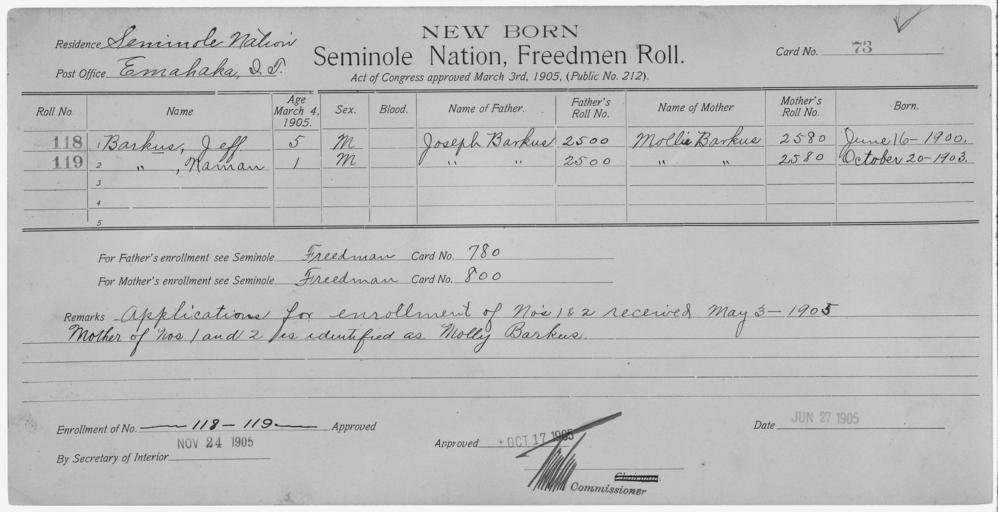 NEW BORN
Seminole Nation, Freedmen Roll.
Act of Congress approved March 3rd, 1905, (Public No. 212).
Residence Seminole Nation
Post Office Emahaka, I.T.
Card No. 73
Roll No Name Age March 4, 1905. Sex. Blood. Name of Father. Father's Roll No. Name of Mother Mother's Roll No. Born.
118 1 Barkus, Jeff 5 M Joseph Barkus 2500 Mollie Barkus 2580 June 16-1900.
119 2 " , Naman 1 M " " 2500 " " 2580 October 20-1903.
3
4
5
For Father's enrollment see Seminole Freedman Card No. 780
For Mother's enrollment see Seminole Freedman Card No. 800
Remarks Applications for enrollment of Nos 1 & 2 received May 3-1905
Mother of Nos. 1 and 2 is identified as Molly Barkus.
Enrollment of No. 118-119 Approved
NOV 24 1905
By Secretary of Interior
Approved OCT 17 1905
Commissioner
Date JUN 27 1905